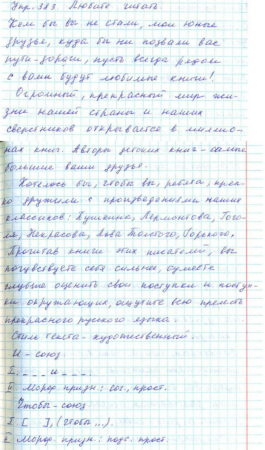 Упр. 383. Любите читать
Кем бы вы не стали, мои юные
друзья, куда бы ни позвали вас
пути-дороги, пусть всегда рядом
с вами будут любимые книги!
Огромный, прекрасный мир жиз-
зни нашей страны и наших
сверстников открывается в миллио-
нах книг. Авторы детских книг - самые
большие ваши друзья.
Хотелось бы, чтобы вы, ребята, креп-
ко дружили с произведениями наших
классиков: Пушкина, Лермонтова, Гого-
ля, Некрасова, Льва Толстого, Горького.
Прочитав книги этих писателей, вы
почувствуете себя сильнее, сумеете
глубже оценить свои поступки и поступ-
ки окружающих, ощутите всю прелесть
прекрасного русского языка.
Стиль текста - художественный.
И - союз
I. _ _ _ и _ _ _.
II Морф. призн.: соч., прост.
Чтобы - союз
I. [ ], (чтобы ...).
II Морф. призн.: подч. прост.